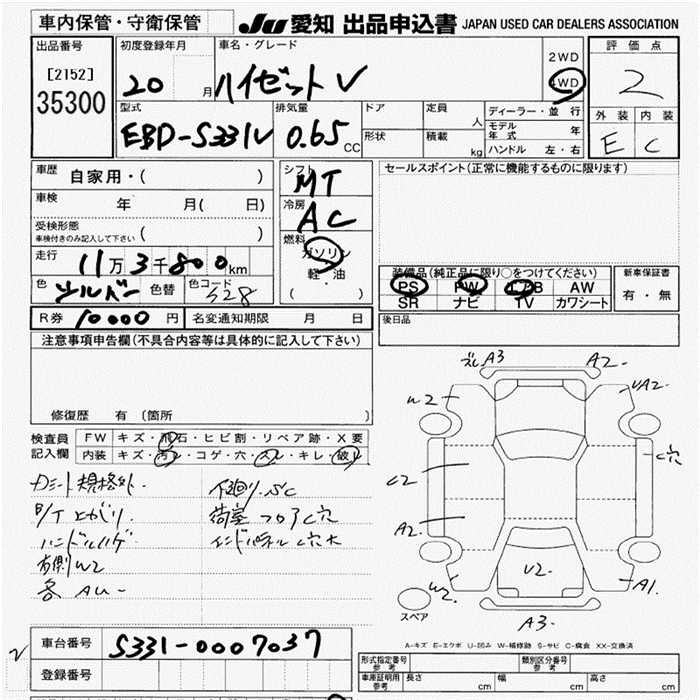 車内保管・守衛保管
JU 愛知 出品申込書 JAPAN USED CAR DEALERS ASSOCIATION
出品番号
[2152]
35300
初度登録年月
20 月
車名・グレード
ハイゼットV
2WD
4WD
評価点
2
外装 内装
E C
型式
EBD-S331V
排気量
0.65 CC
ドア
形状
定員 人
積載 kg
ディーラー・並行
モデル年式 年
ハンドル 左・右
車歴 自家用・( )
車検 年 月( 日)
受検形態
車検付きのみ記入して下さい ( )
走行 11万3千800km
色 シルバー 色替 色コード S28
シフト
MT
冷房
AC
燃料
ガソリン
軽・油
( ・ )
セールスポイント(正常に機能するものに限ります)
装備品(純正品に限り○をつけてください)
PS PW エアB AW
SR ナビ TV カワシート
新車保証書
有・無
後日品
R券 10000円 名変通知期限 月 日
注意事項申告欄(不具合内容等は具体的に記入して下さい)
修復歴 有 〔箇所 〕
検査員
記入欄
FW キズ・飛石・ヒビ割・リペア跡・X要
内装 キズ・汚レ・コゲ・穴・スレ・キレ・破レ
規格外.
下廻り.SC
上がり.
荷室フロアC穴
ハンドルハゲ
C穴大
右側W2
各AU-
ズレ A3
A2-
W2
VA2-
C2
C穴
A2-
W2-
V2-
A1.
A3-
スペア
A-キズ E-エクボ U-凹み W-補修跡 S-サビ C-腐食 XX-交換済
車台番号 S331-0007037
登録番号
2
形式指定番号
参考
類別区分番号
参考
車庫証明用
参考
長さ cm 幅 cm 高さ cm